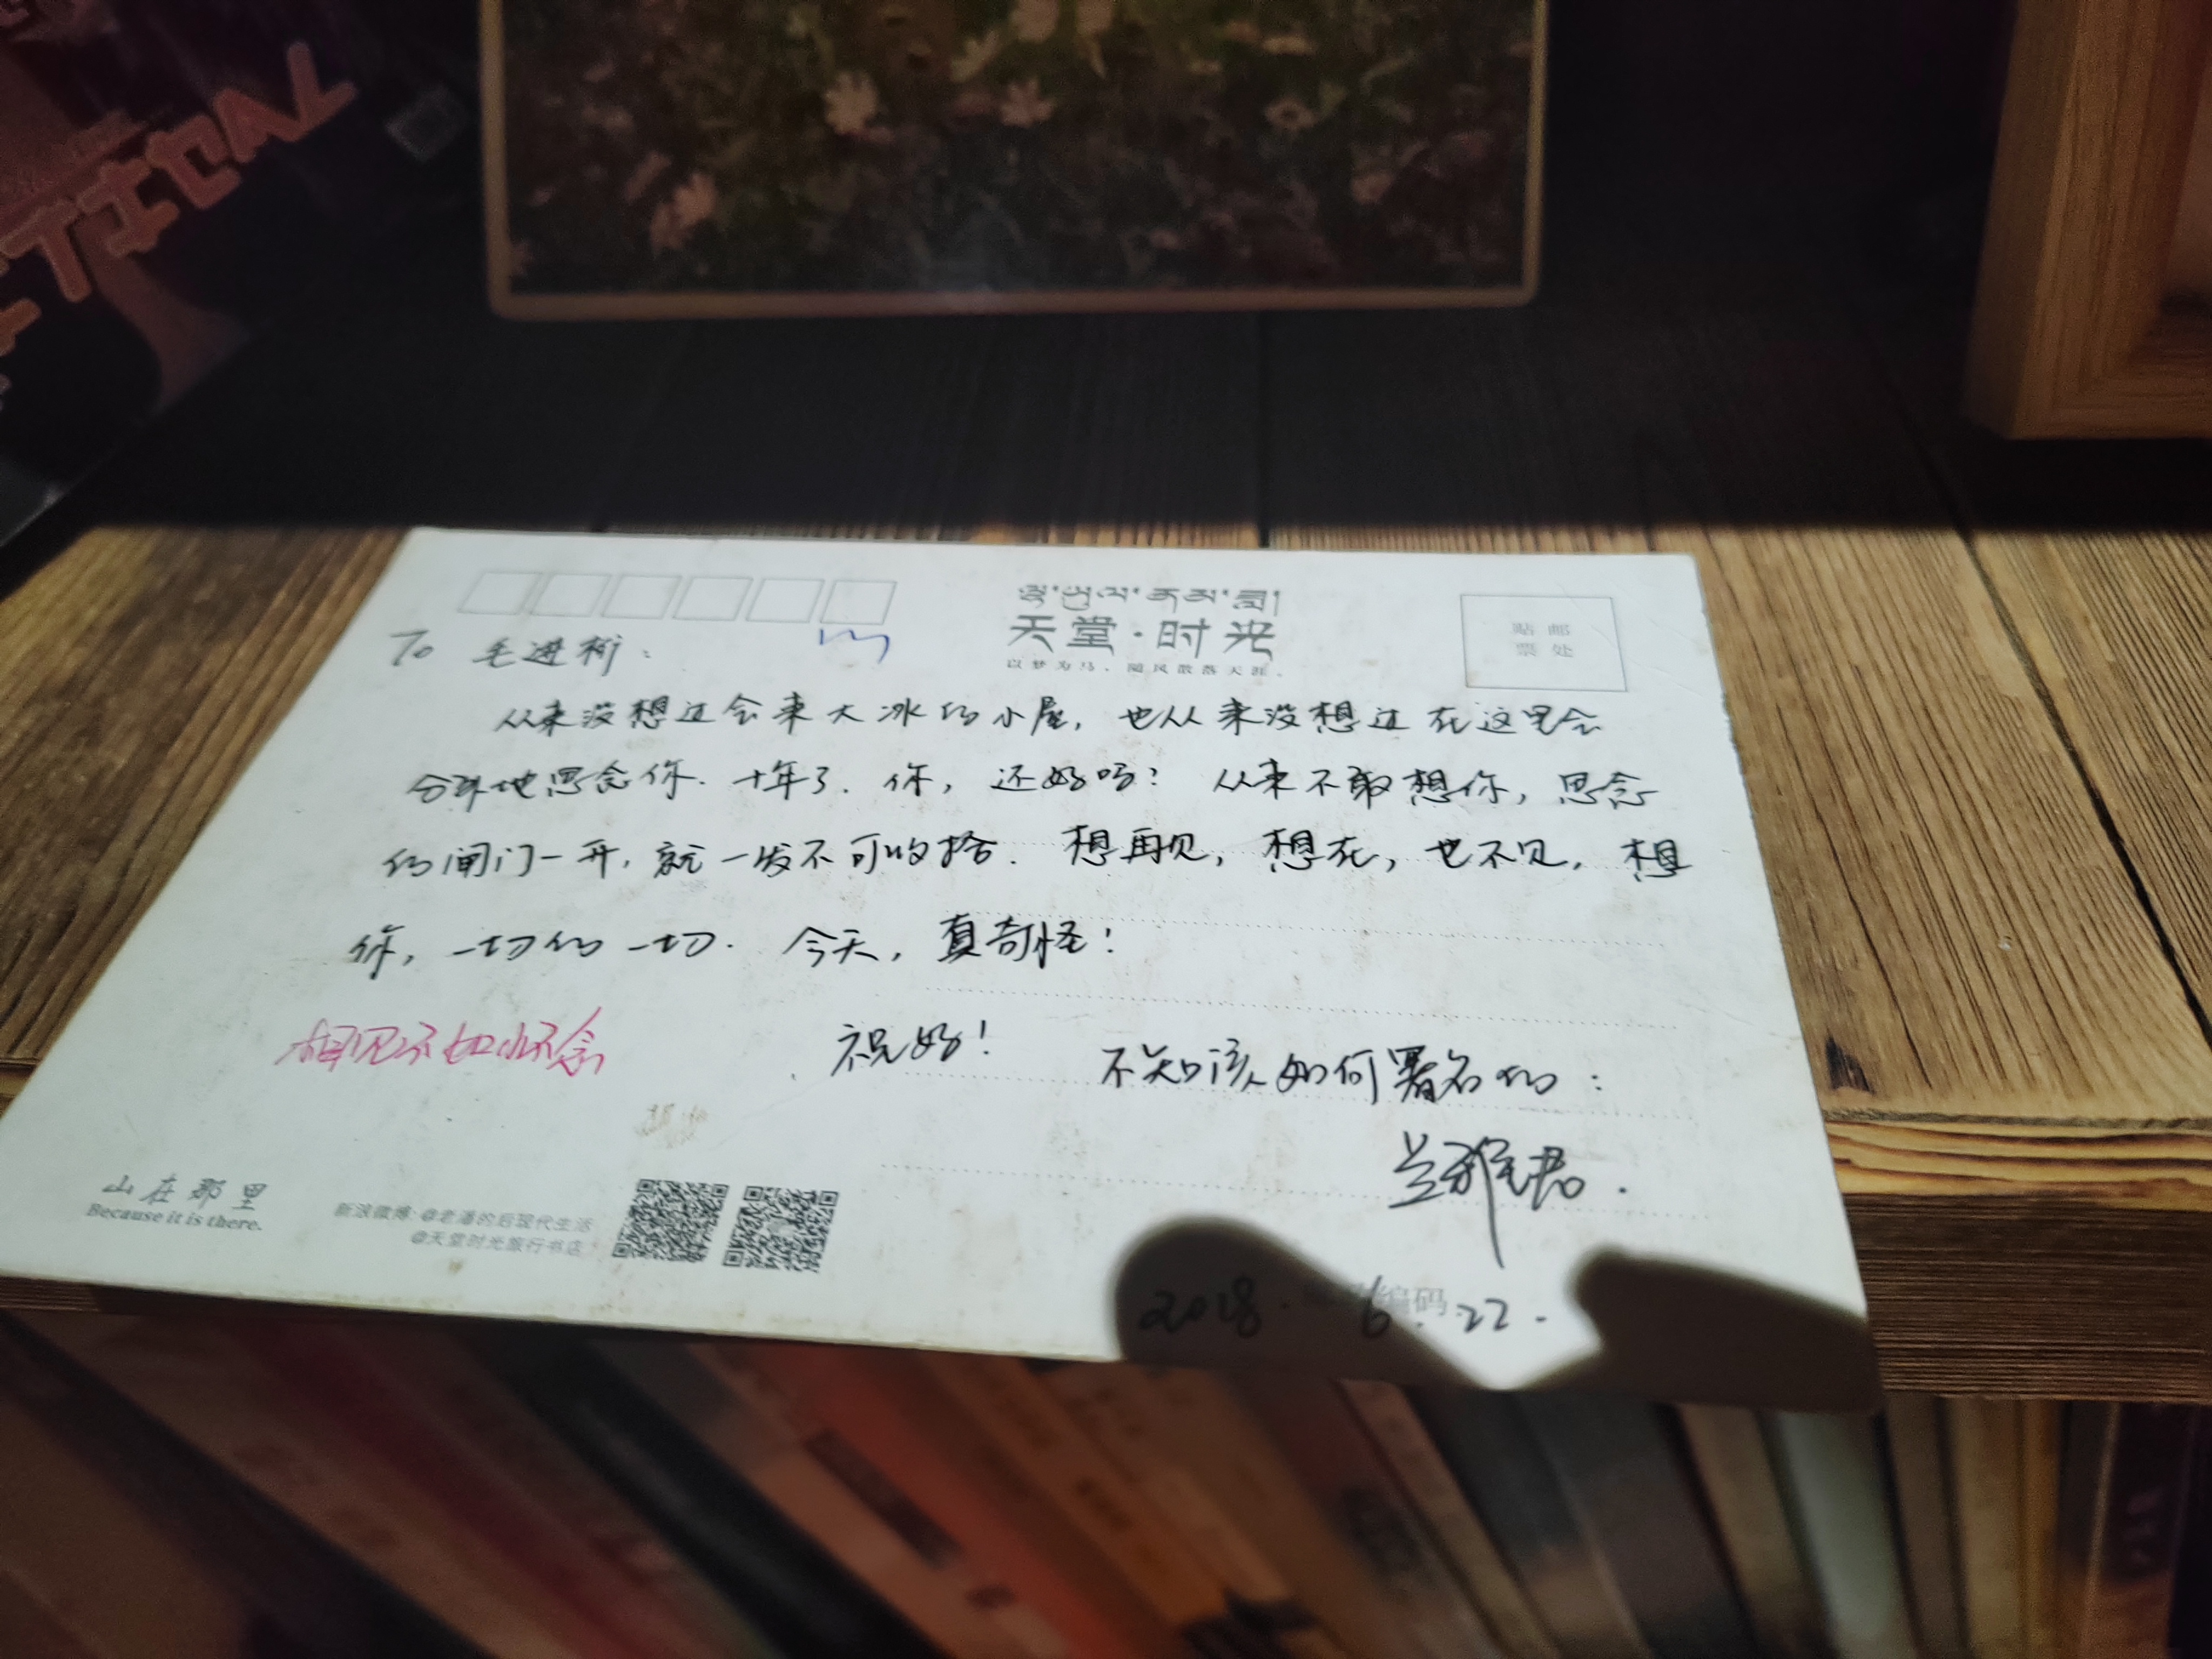 TIAL
ལྷ་ཡུལ་
天堂·时光
以梦为马，随风散落天涯。
贴邮
票处
To 毛进彬：
从来没想过会来大冰的小屋，也从来没想过在这里会
分外地思念你．十年了．你，还好吗？从来不敢想你，思念
的闸门一开，就一发不可收拾．想再见，想在，也不见，想
你，一切的一切．今天，真奇怪！
相见不如怀念
祝好！
不知该如何署名的：
2018.6.22.
编码
山在那里
Because it is there.
新浪微博：@老潘的后现代生活
@天堂时光旅行书店